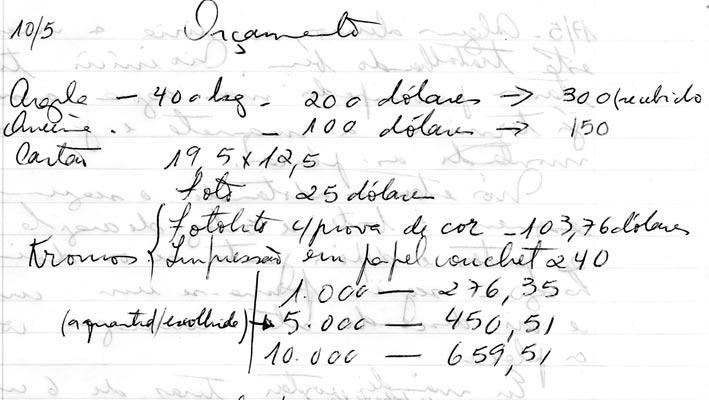 10/5 Orçamento
Argila — 400 kg - 200 dólares → 300 (recebido
. - 100 dólares → 150
Cartão 19,5 x 12,5
Foto 25 dólares
Fotolito c/prova de cor - 103,76 dólares
Kromos { Impressão em papel couchet 240
1.000 — 276,35
(a quantid/escolhida) → 5.000 — 450,51
10.000 — 659,51